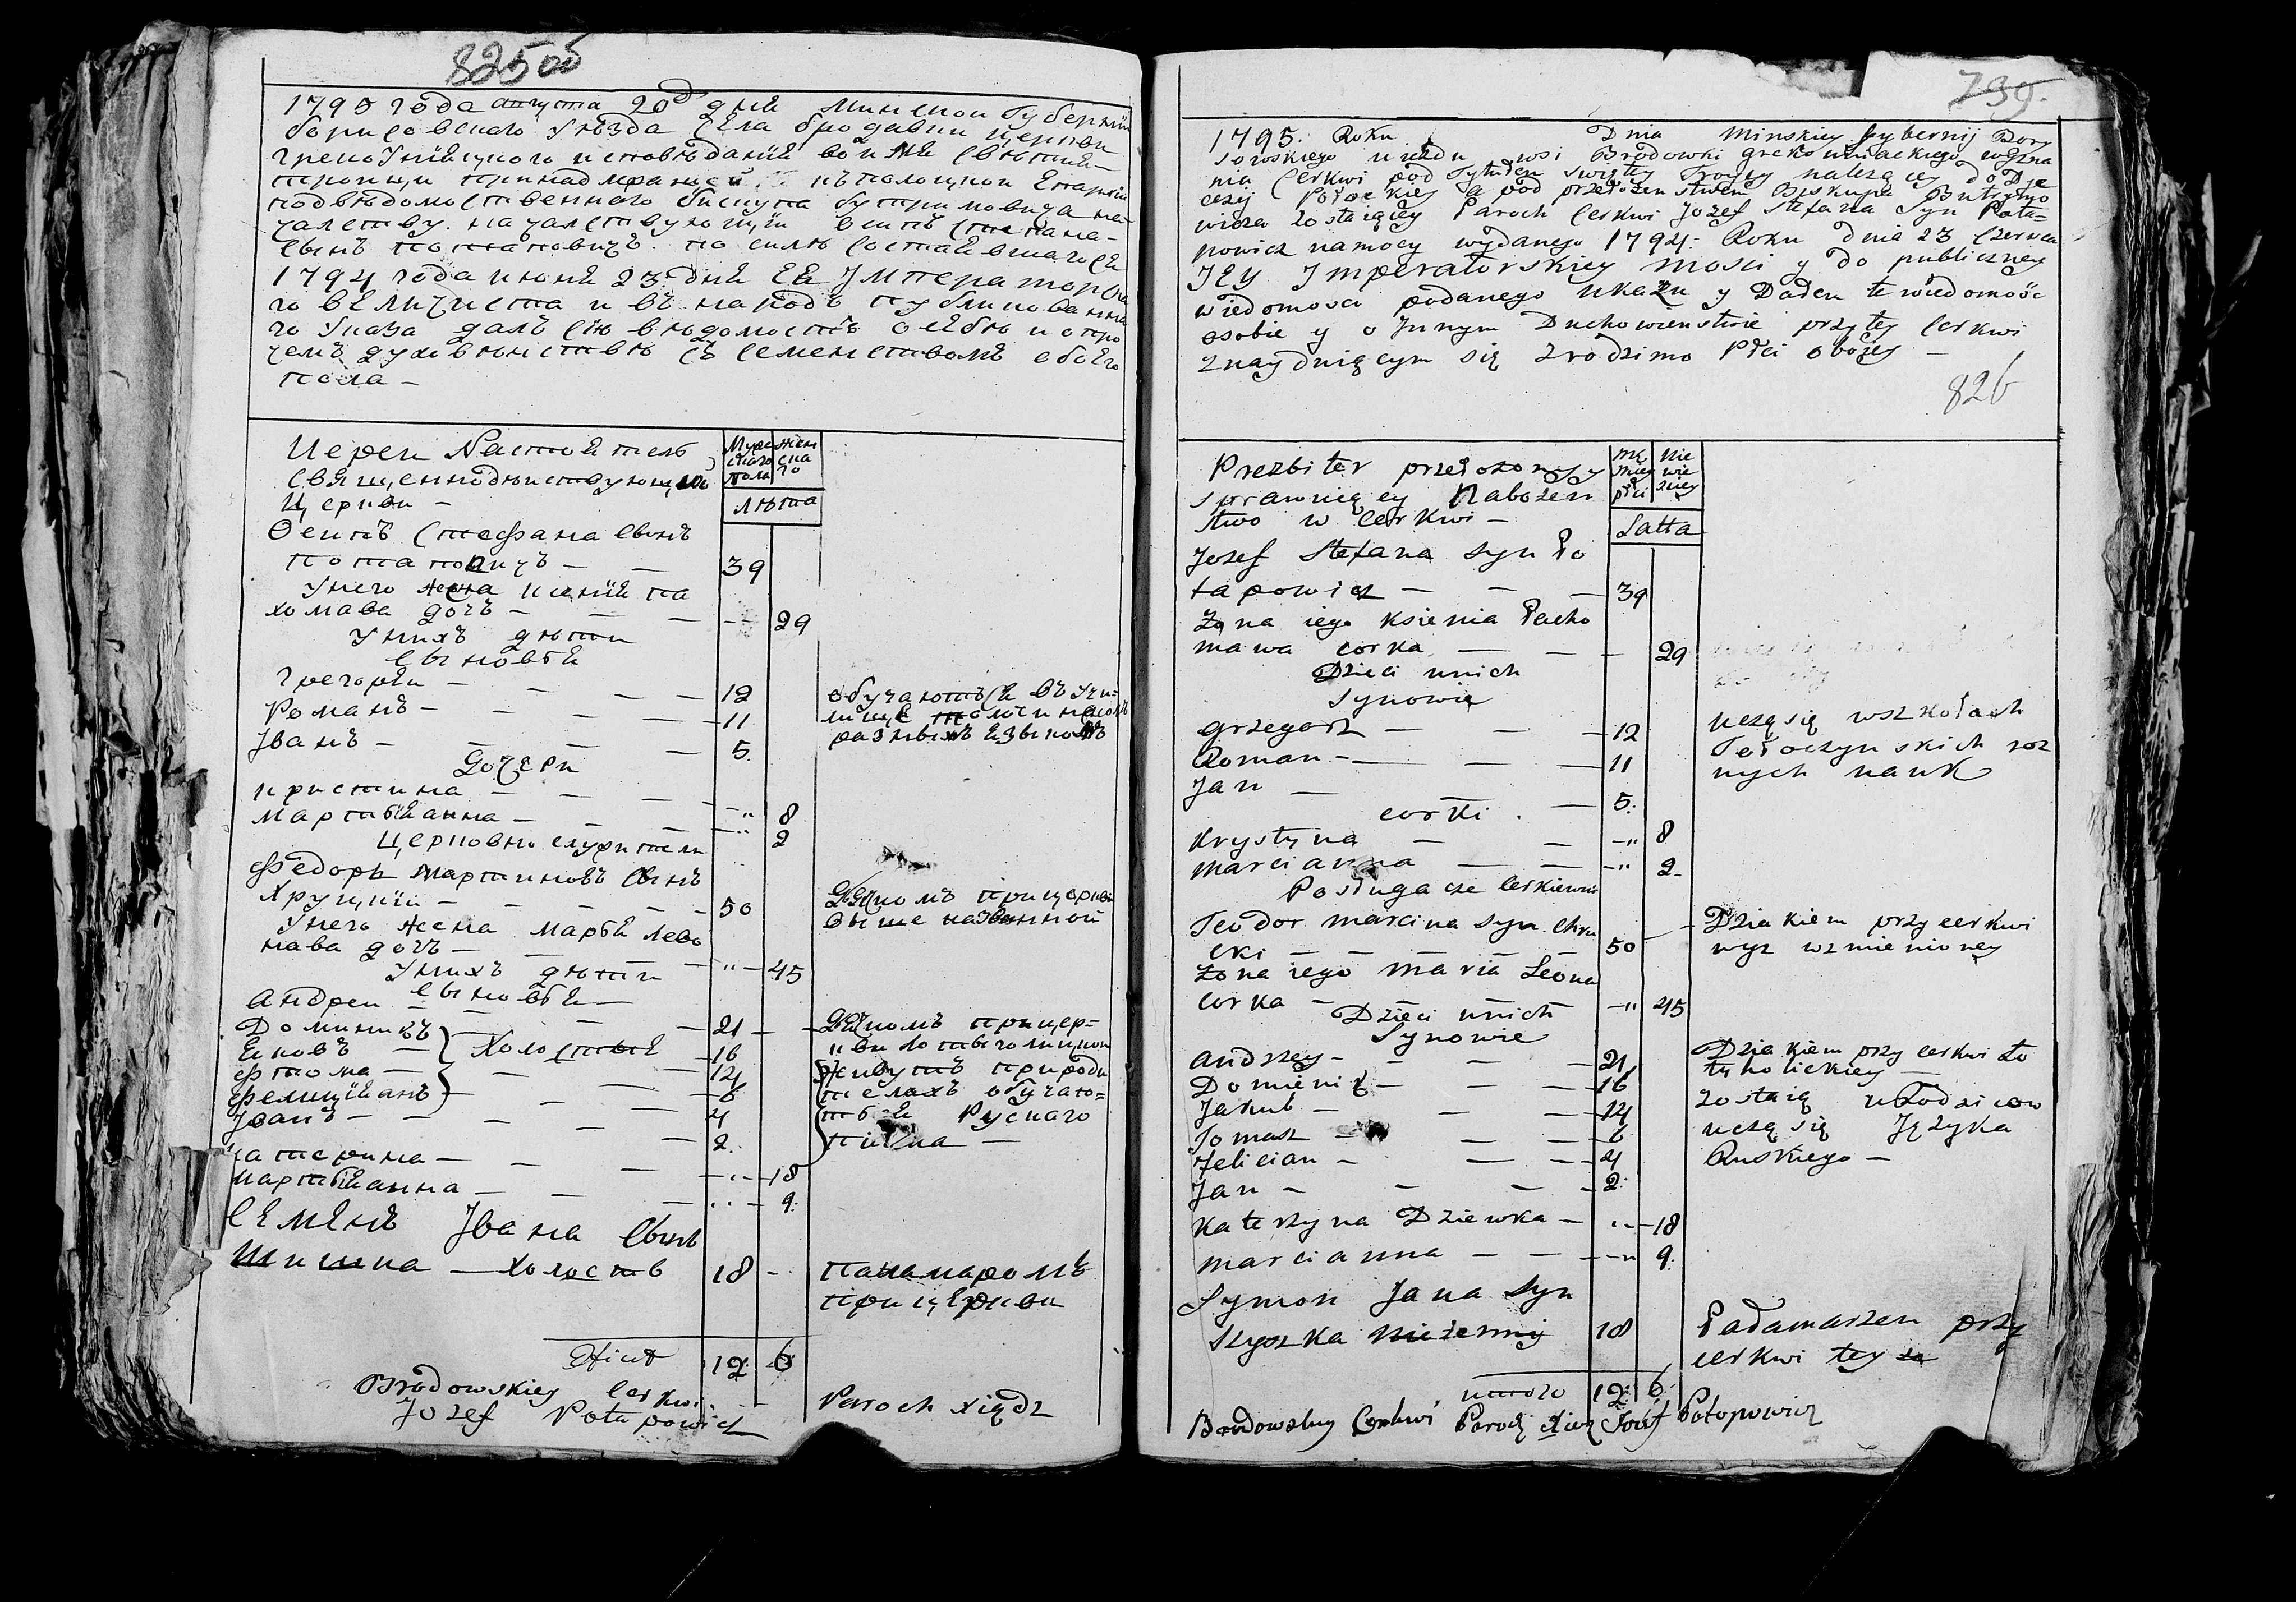 825 об
1795 года августа 20д дня Минской Губернїи
борисовского уѣзда села бродавки церкви
грекоунїяцкого исповѣданїя во имя святия
троицы принадлежащей къ полоцкои Епархїи
подвѣдомственного бискупа бутримовича на-
чалству. началствующїи Осипъ Степана
сынъ потаповичъ. по силѣ состоявшагося
1794 года июня 23 дня Ея Императорска
го величиства и въ народъ публикованна
го указа далъ сїю вѣдомость о себѣ и о про
чемъ духовѣнствѣ съ семенствомъ обоего
пола —
Иереи Настоятель
священнодѣиствующи
Церкви —
Мужескаго пола
женскаго
лѣта
Осипъ Стефана сынъ
потаповичъ — — 39
У него жена ксенїя па
хомава дочъ — — — 29
У нихъ дѣти
сыновья
Грегорѣи — — — — 12 обучаются въ учи-
Романъ — — — — 11 лище
Иванъ — — — — 5. разныхъ языковъ
Дочери
кристина — — — " 8
Мартыянна — — — " 2
Церковно служители
Федоръ Мартиновъ сынъ
Хруцкїи — — — — 50 Дячкомъ при церкви
выше названной
У него жена Марья Лево
нава дочъ — — — " — 45
У нихъ дѣти
сыновья —
Андреи — — — 21 — — Дячкомъ при цер-
Доминикъ — — 16 кви
Яковъ — Холостые — 14 живутъ при роди
Фтома — — — 6 телахъ обучаю-
Фелицыянъ — — — 4 тся Рускаго
Иванъ — — — — 2. писма —
катерина — — — — 18
Мартыянна — — — — 9.
Семенъ Ивана сынъ
Шишка — холостъ 18 — панамаромъ
при церкви
12: 6:
Brodowskiey Cerkwi Paroch xiądz
Jozef Potapowicz
739.
1795. Roku Dnia Minskiey Gybernij Bory
sowskiego uiezdu wsi Brodowki greko uniackiego wyzna
nia Cerkwi pod Tytułem Swięty Troycy należącey do Dye
cezij Połockiey a pod przełożenstwem Biskupa Butrymo
wicza zostaiącey Paroch Cerkwi Jozef Stefana Syn Pota-
powicz namocy wydanego 1794: Roku dnia 23 Czerwca
JEY Imperatorskiey mosci y do publiczney
wiedomosci podanego ukazu y Daden te wiedomość
osobie y o Jnnym Duchowienstwie przy tey Cerkwi
znayduiącym się zrodzimo Płci oboiey —
826
Prezbiter przełożony y
sprawuiącey Nabożen
stwo w Cerkwi —
męskiey płci
Niewieskiey
Latta
Jozef Stefana Syn Po
tapowicz — — — 39
Zona iego Ksienia Pacho
mawa corka — — — 29
Dzieci unich
Synowie
Grzegorz — — — 12 uczą się wszkołach
Roman — — — — 11 Tołoczynskich roz
Jan — — — 5: nych nauk
corki.
Krystyna — — — " 8
Marcianna — — — " 2.
Posługacze Cerkiewni
Teodor Marcina syn Chru
cki — — — — 50 — Dziakiem przy cerkwi
wyz wzmienioney
Zona iego Maria Leona
corka — — " 45
Dzieci unich
Synowie
Andrzey — — — 21 Dziakiem przy cerkwi Ło
Dominik — — — 16 tyholickiey —
Jakub — — — 14 zostaią uRodzicow
Tomasz — — — 6 uczą się Języka
Felician — — — 4 Ruskiego —
Jan — — — 2:
Katerzyna Dziewka — " — 18
Marcianna — — — " 9.
Symon Jana Syn
Szyszka nieżenny 18 Padamarzem przy
cerkwi tey że
12: 6:
Brodowskey Cerkwi Paroch Xiądz Jozef Potapowicz